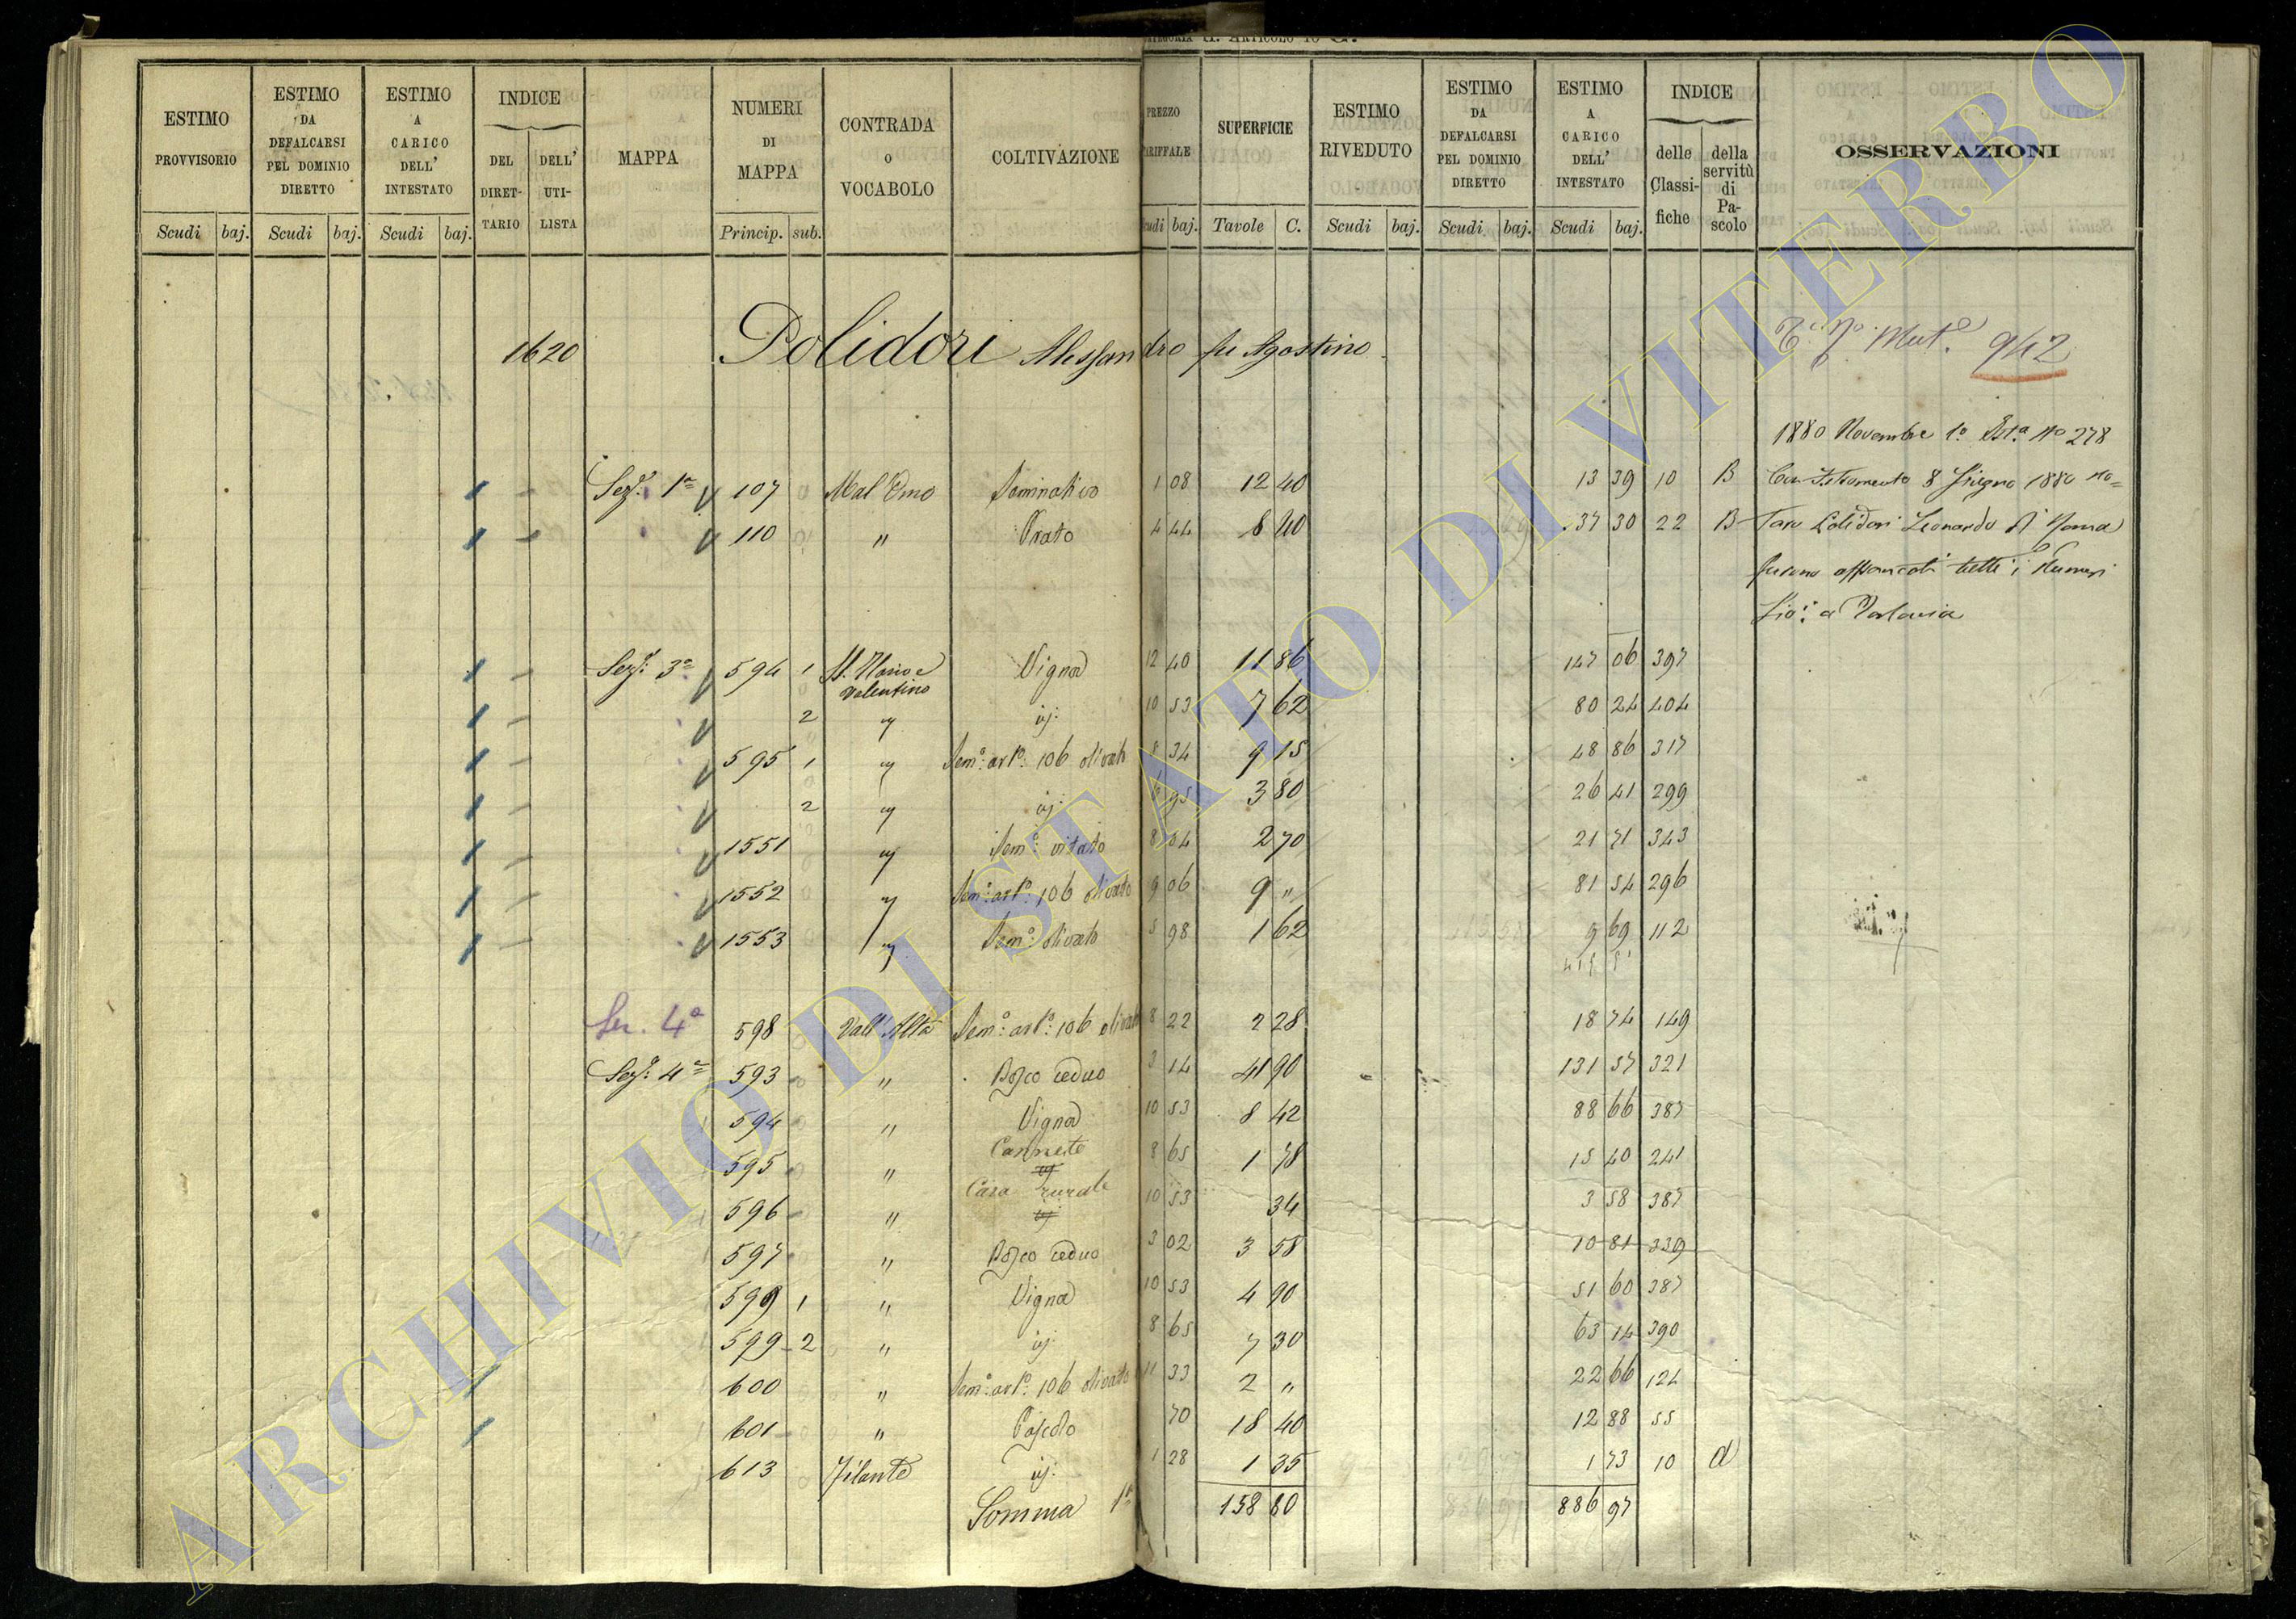 CATEGORIA II. ARTICOLO 10 G.
ESTIMO PROVVISORIO
ESTIMO DA DEFALCARSI PEL DOMINIO DIRETTO
ESTIMO A CARICO DELL' INTESTATO
INDICE
DEL DIRET-TARIO
DELL' UTI-LISTA
MAPPA
NUMERI DI MAPPA
CONTRADA O VOCABOLO
COLTIVAZIONE
PREZZO TARIFFALE
SUPERFICIE
ESTIMO RIVEDUTO
ESTIMO DA DEFALCARSI PEL DOMINIO DIRETTO
ESTIMO A CARICO DELL' INTESTATO
INDICE
delle Classi-fiche
della servitù di Pa-scolo
OSSERVAZIONI
Scudi baj. Scudi baj. Scudi baj. Princip. sub. Scudi baj. Tavole C. Scudi baj. Scudi baj. Scudi baj.
1620 Polidori Alessandro fu Agostino
942
1880 Novembre 1º No 278
Sezе. 1ª 107 Mal Omo Seminativo 1 08 12 40 13 39 10 B
Con Istromento 8 Giugno 1880 No=
110 " Prato 4 44 8 40 37 30 22 B
taro Polidori Leonardo di Roma
furono affrancati tutti i Numeri
Sez. 3ª 594 1 SS. Mario e Valentino Vigna 12 40 11 86 147 06 397
2 " id: 10 53 7 62 80 24 404
595 1 " Semº: arbº: 106 olivato 8 34 9 15 48 86 317
2 " id: 6 95 3 80 26 41 299
1551 " Semº: vitato 8 04 2 70 21 71 343
1552 " Semº: arbº: 106 olivato 9 06 9 " 81 54 296
1553 " Semº: olivato 5 98 1 62 9 69 112
Sez. 4ª 598 Vall'Alta Semº: arbº: 106 olivato 8 22 2 28 18 74 149
Sez: 4ª 593 " Bosco ceduo 3 14 41 90 131 57 321
594 " Vigna 10 53 8 42 88 66 387
595 " Canneto id 8 65 1 78 15 40 241
596 " Casa rurale id 10 53 34 3 58 387
597 " Bosco ceduo 3 02 3 58 10 81 339
599 1 " Vigna 10 53 4 90 51 60 387
599 2 " id 8 65 7 30 63 14 390
600 " Semº: arbº: 106 olivato 11 33 2 " 22 66 124
601 " Pascolo 70 18 40 12 88 55
613 Filante id: 1 28 1 35 1 73 10 d
Somma 1ª 158 80 886 97
ARCHIVIO DI STATO DI VITERBO